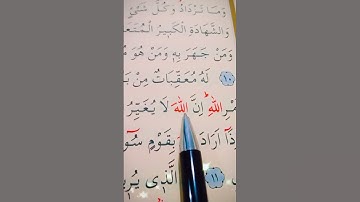 وَمَا تَزْدَادُ وَكُلُّ شَيْءٍ
وَالشَّهَادَةِ الْكَبِيرُ الْمُتَعَ
وَمَنْ جَهَرَ بِهٖ وَمَنْ هُوَ مُ
١٠ لَهُ مُعَقِّبَاتٌ مِنْ بَ
مْرِ اللّٰهِ اِنَّ اللّٰهَ لَا يُغَيِّرُ
ذَٓا اَرَادَ بِقَوْمٍ سُٓو
١١ الَّذٖي يُرٖي